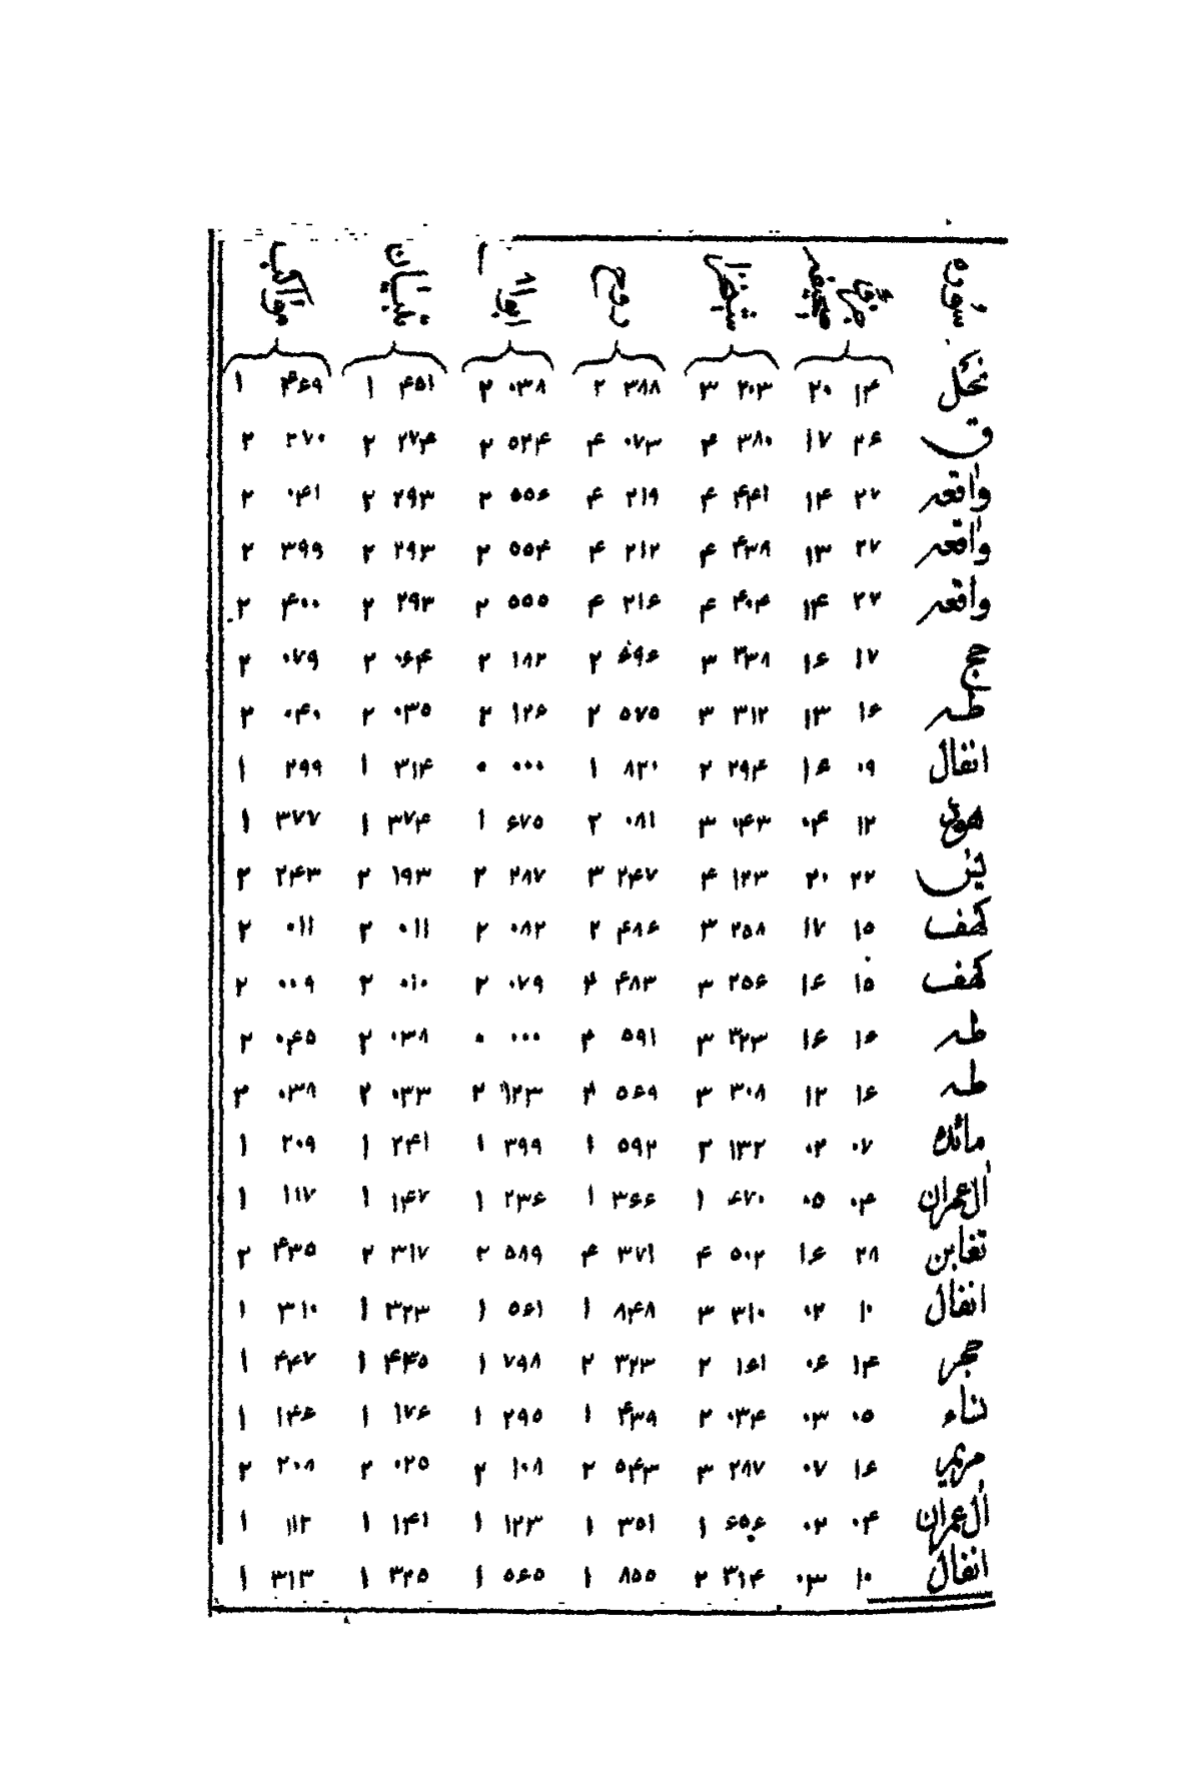 سوره جزء صحیفه روح تبیان مواکب
نحل ۱۴ ۲۰ ۲۰۳ ۳ ۳۸۸ ۲ ۰۳۸ ۲ ۴۵۱ ۱ ۴۶۹ ۱
ق ۲۶ ۱۷ ۳۸۰ ۴ ۰۷۳ ۴ ۵۲۴ ۲ ۲۷۴ ۲ ۲۷۰ ۲
واقعه ۲۷ ۱۴ ۴۴۱ ۴ ۲۱۹ ۴ ۵۵۶ ۲ ۲۹۳ ۲ ۰۴۱ ۲
واقعه ۲۷ ۱۳ ۴۳۸ ۴ ۲۱۲ ۴ ۵۵۴ ۲ ۲۹۳ ۲ ۳۹۹ ۲
واقعه ۲۷ ۱۴ ۴۰۴ ۴ ۲۱۶ ۴ ۵۵۵ ۲ ۲۹۳ ۲ ۴۰۰ ۲
حج ۱۷ ۱۶ ۳۳۸ ۳ ۶۹۶ ۲ ۱۸۲ ۲ ۰۶۴ ۲ ۰۷۹ ۲
طه ۱۶ ۱۳ ۳۱۲ ۳ ۵۷۵ ۲ ۱۲۶ ۲ ۰۳۵ ۲ ۰۴۰ ۲
انفال ۰۹ ۱۶ ۲۹۴ ۲ ۸۲۰ ۱ ۰۰۰ ۰ ۳۱۴ ۱ ۲۹۹ ۱
هود ۱۲ ۰۴ ۰۴۳ ۳ ۰۸۱ ۲ ۶۷۵ ۱ ۳۷۴ ۱ ۳۷۷ ۱
یس ۲۲ ۲۰ ۱۲۳ ۴ ۲۴۷ ۳ ۲۸۷ ۲ ۱۹۳ ۲ ۲۴۳ ۲
کهف ۱۵ ۱۷ ۲۵۸ ۳ ۴۸۶ ۲ ۰۸۲ ۲ ۰۱۱ ۲ ۰۱۱ ۲
کهف ۱۵ ۱۶ ۲۵۶ ۳ ۴۸۳ ۲ ۰۷۹ ۲ ۰۱۰ ۲ ۰۰۹ ۲
طه ۱۶ ۱۶ ۳۲۳ ۳ ۵۹۱ ۲ ۰۰۰ ۰ ۰۳۸ ۲ ۰۴۵ ۲
طه ۱۶ ۱۲ ۳۰۸ ۳ ۵۶۹ ۲ ۱۲۳ ۲ ۰۳۳ ۲ ۰۳۸ ۲
مائده ۰۷ ۰۲ ۱۳۲ ۲ ۵۹۲ ۱ ۳۹۹ ۱ ۲۴۱ ۱ ۲۰۹ ۱
آل عمران ۰۴ ۰۵ ۶۷۰ ۱ ۳۶۶ ۱ ۲۳۶ ۱ ۱۴۷ ۱ ۱۱۷ ۱
تغابن ۲۸ ۱۶ ۵۰۲ ۴ ۳۷۱ ۴ ۵۸۹ ۲ ۳۱۷ ۲ ۴۳۵ ۲
انفال ۱۰ ۰۲ ۳۱۰ ۳ ۸۴۸ ۱ ۵۶۱ ۱ ۳۲۳ ۱ ۳۱۰ ۱
حجر ۱۴ ۰۶ ۱۶۱ ۲ ۳۲۳ ۲ ۷۹۸ ۱ ۴۳۵ ۱ ۴۴۷ ۱
نساء ۰۵ ۰۳ ۰۳۴ ۲ ۴۳۹ ۱ ۲۹۵ ۱ ۱۷۶ ۱ ۱۴۶ ۱
مریم ۱۶ ۰۷ ۲۸۷ ۳ ۵۴۳ ۲ ۱۰۸ ۲ ۰۲۵ ۲ ۲۰۸ ۲
آل عمران ۰۴ ۰۲ ۶۵۶ ۱ ۳۵۱ ۱ ۱۲۳ ۱ ۱۴۱ ۱ ۱۱۲ ۱
انفال ۱۰ ۰۳ ۳۱۴ ۲ ۸۵۵ ۱ ۵۶۵ ۱ ۳۲۵ ۱ ۳۱۳ ۱